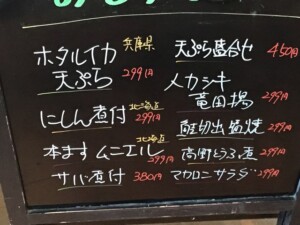 ホタルイカ 兵庫県
天ぷら 299円
にしん煮付 北海道 299円
本ますムニエル 北海道 299円
サバ煮付 380円
天ぷら盛合せ 450円
メカジキ
竜田揚 299円
鮭切出塩焼 299円
高野とうふ煮 299円
マカロニサラダ 299円